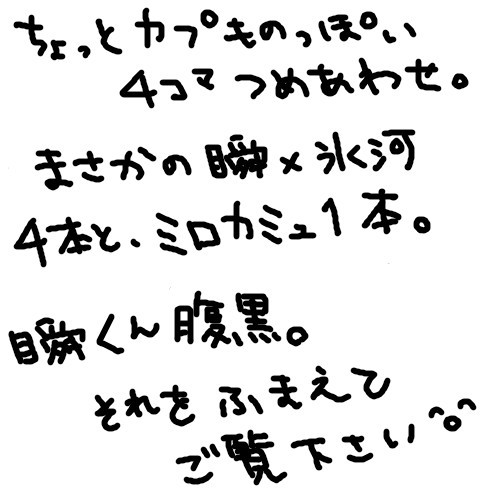 ちょっとカプものっぽい
4コマつめあわせ。
まさかの瞬×氷河
4本と、ミロカミュ1本。
瞬くん腹黒。
それをふまえて
ご覧下さい^o^